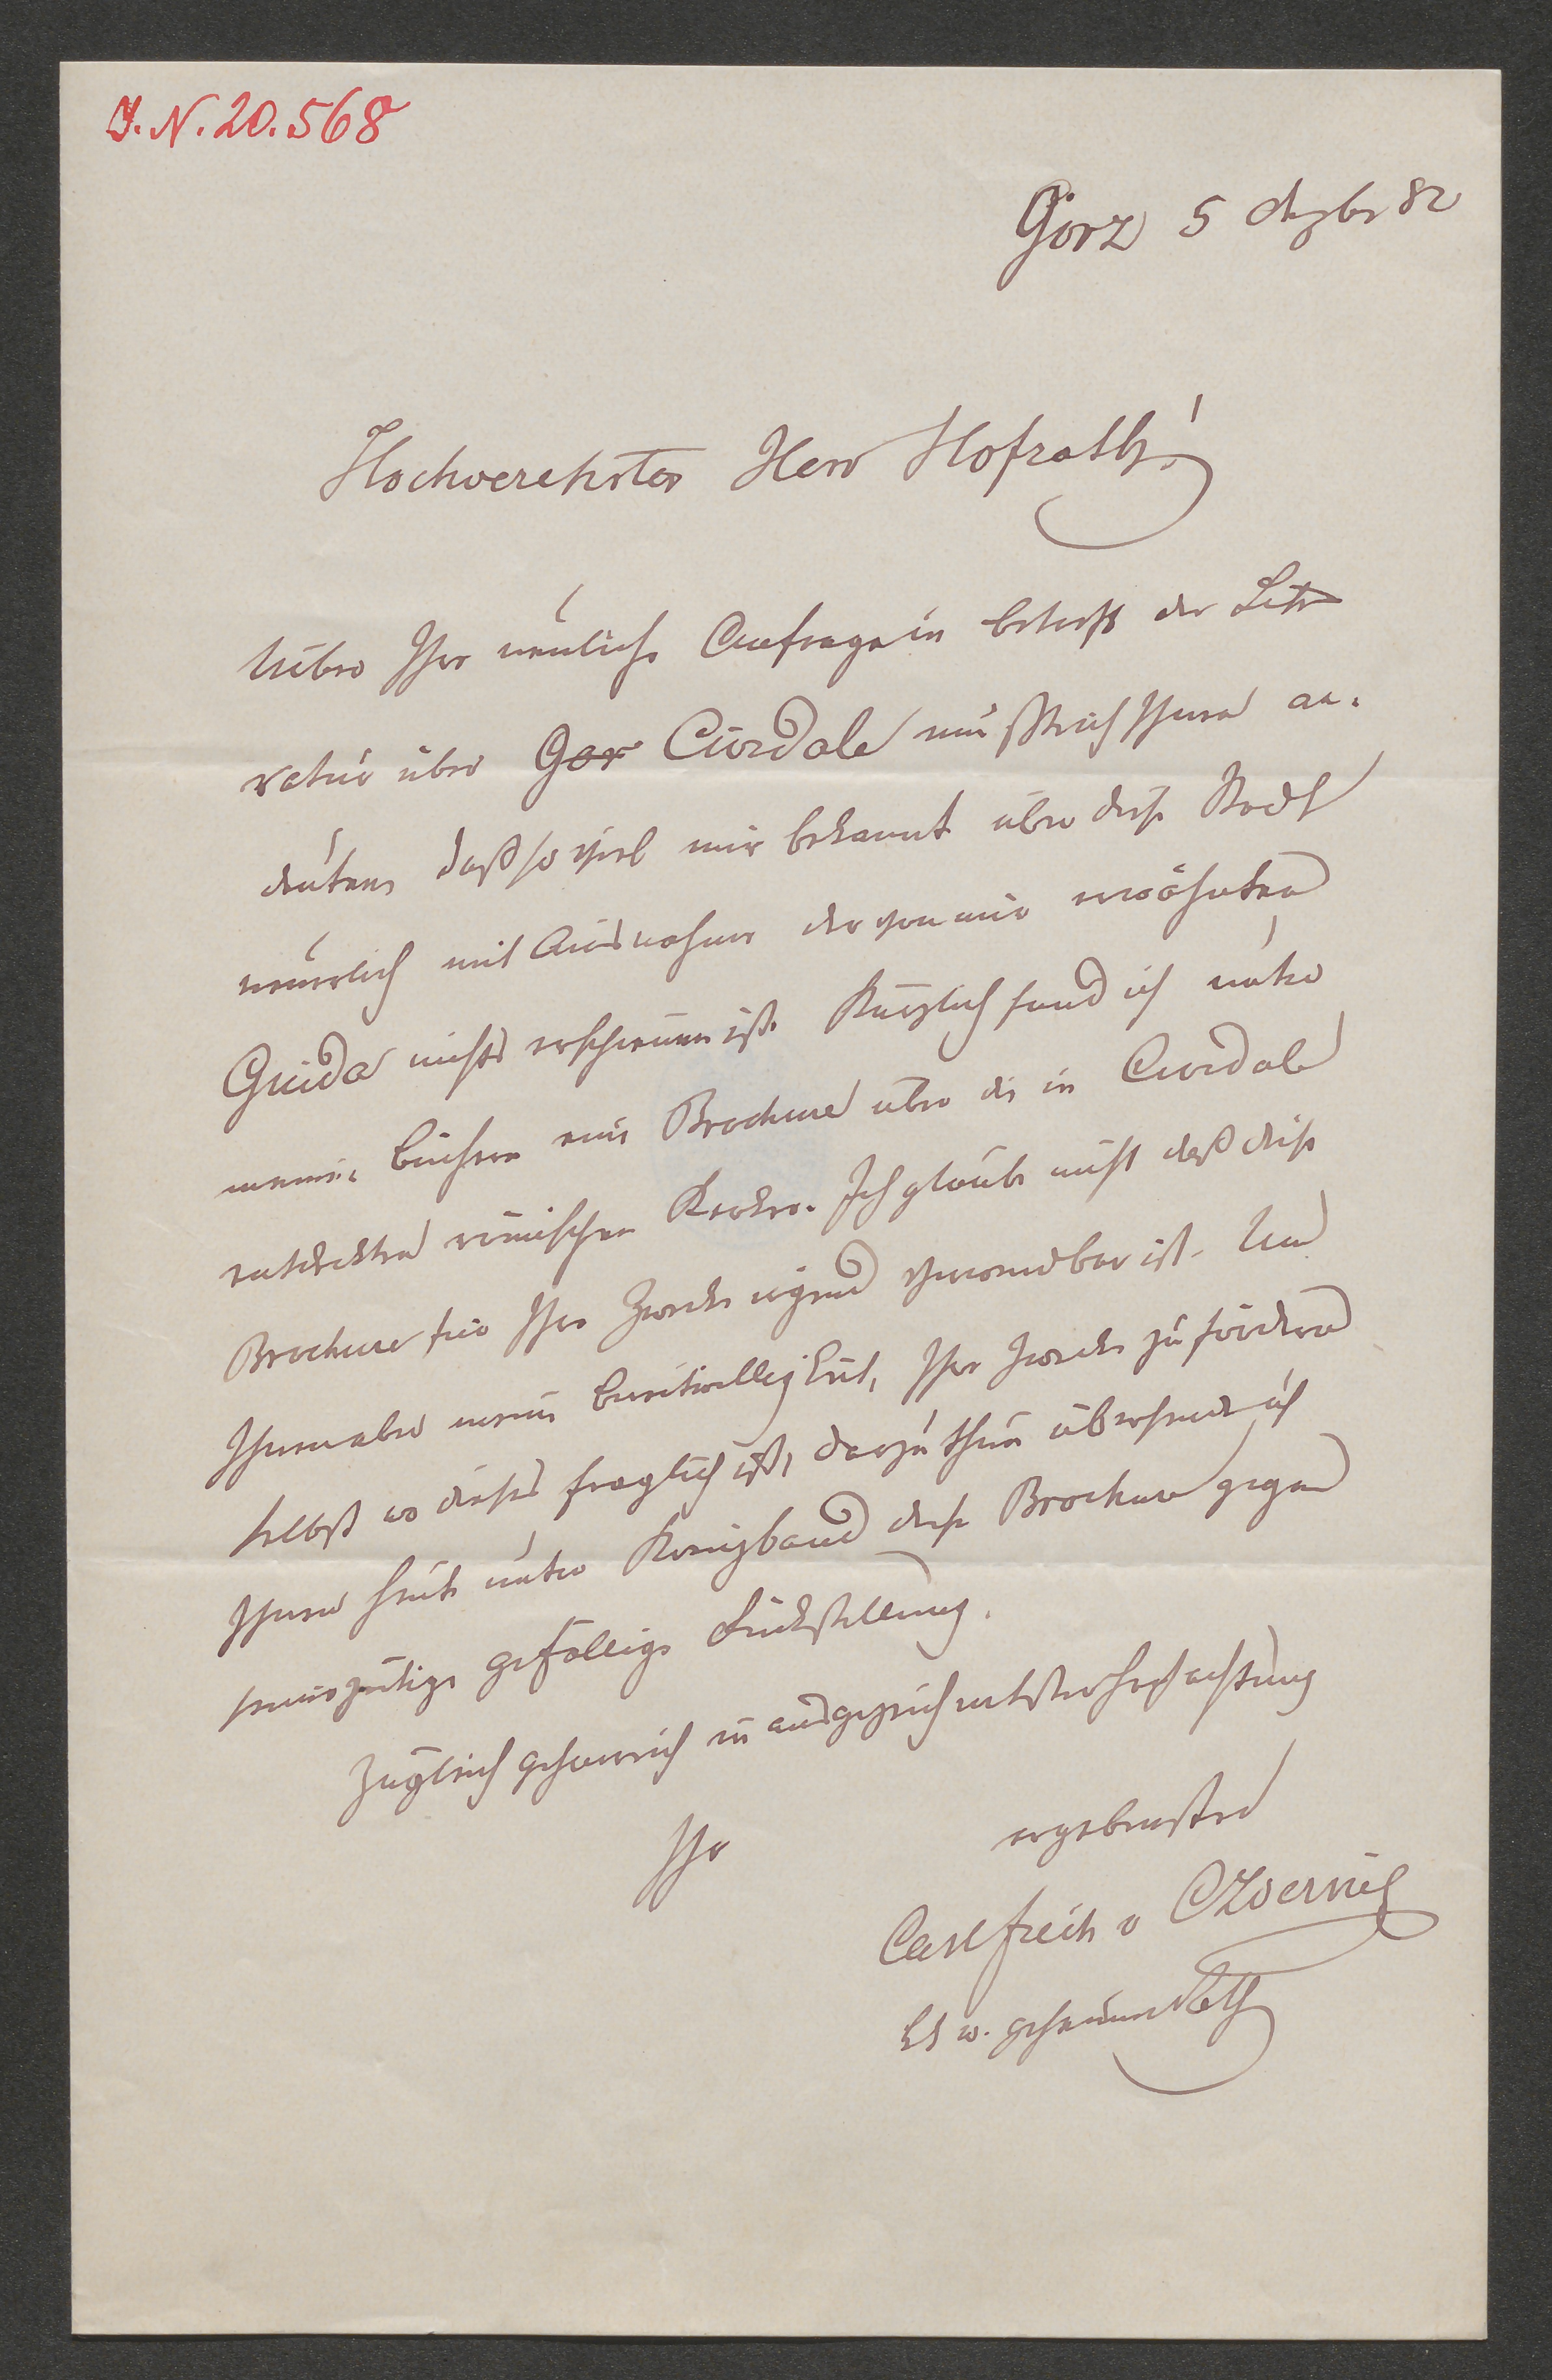 J. N. 20.568
Görz 5 Dezbr 82
Hochverehrter Herr Hofrath!
Über Ihre neuliche Anfrage in betreff der Litte
ratur über Gör Cividale muß ich Ihnen an-
deuten daß so viel mir bekannt über diese Stadt
neuerlich mit Ausnahme der von mir erwähnten
Guida nichts erschienen ist. Kürzlich fand ich unter
meinen Büchern eine Brochure über die in Cividale
entdeckten römischen Kerker. Ich glaube nicht daß diese
Brochure für Ihre Zwecke irgend verwendbar ist. Um
Ihnen aber meine Bereitwilligkeit, Ihre Zwecke zu fördern
selbst wo dieses fraglich ist, darzuthun übersende ich
Ihnen heute unter Kreuzband diese Brochure gegen
seinerzeitige gefällige Rückstellung.
Zugleich geharre ich in ausgezeichnetster Hochachtung
Ihr ergebenster
Carl Freih v Czoernig
kk w. geheimer Rath